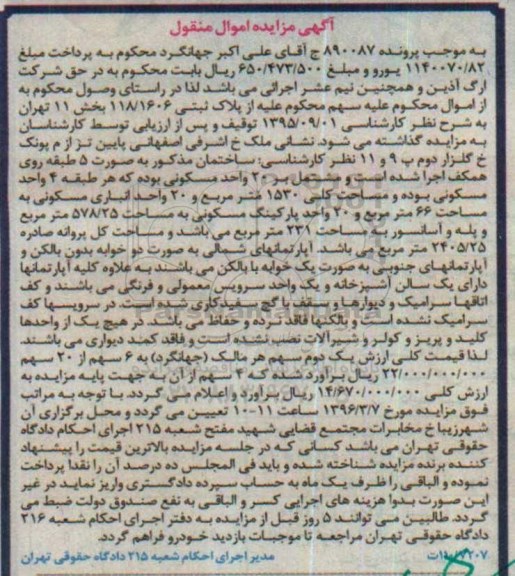 آگهی مزایده اموال منقول
به موجب پرونده ۸۹۰۰۸۷ ج آقای علی اکبر جهانگرد محکوم به پرداخت مبلغ
۱۱۴۰۰۷۰/۸۲ یورو و مبلغ ۶۵۰/۴۷۳/۵۰۰ ریال بابت محکوم به در حق شرکت
ارگ آذین و همچنین نیم عشر اجرائی می باشد لذا در راستای وصول محکوم به
از اموال محکوم علیه سهم محکوم علیه از پلاک ثبتی ۱۱۸/۱۶۰۶ بخش ۱۱ تهران
به شرح نظر کارشناسی ۱۳۹۵/۰۹/۰۱ توقیف و پس از ارزیابی توسط کارشناسان
به مزایده گذاشته می شود. نشانی ملک خ اشرفی اصفهانی پایین تر از م پونک
خ گلزار دوم پ ۹ و ۱۱ نظر کارشناسی: ساختمان مذکور به صورت ۵ طبقه روی
همکف اجرا شده است و مشتمل بر ۲۰ واحد مسکونی بوده که هر طبقه ۴ واحد
مسکونی بوده و مساحت کلی ۱۵۳۰ متر مربع و ۲۰ واحد انباری مسکونی به
مساحت ۶۶ متر مربع و ۲۰ واحد پارکینگ مسکونی به مساحت ۵۷۸/۲۵ متر مربع
و پله و آسانسور به مساحت ۲۳۱ متر مربع می باشد و مساحت کل پروانه صادره
۲۴۰۵/۲۵ متر مربع می باشد. آپارتمانهای شمالی به صورت دو خوابه بدون بالکن و
آپارتمانهای جنوبی به صورت یک خوابه با بالکن می باشند به علاوه کلیه آپارتمانها
دارای یک سالن آشپزخانه و یک واحد سرویس معمولی و فرنگی می باشند و کف
اتاقها سرامیک و دیوارها و سقف با گچ سفیدکاری شده است. در سرویسها کف
سرامیک نشده است و بالکنها فاقد نرده و حفاظ می باشد. در هیچ یک از واحدها
کلید و پریز و کولر و شیرآلات نصب نشده است و فاقد کمد دیواری می باشند.
لذا قیمت کلی ارزش یک دوم سهم هر مالک (جهانگرد) به ۶ سهم از ۲۰ سهم
۲۲/۰۰۰/۰۰۰/۰۰۰ ریال برآورد شده که ۴ سهم از آن به جهت پایه مزایده به
ارزش کلی ۱۴/۶۷۰/۰۰۰/۰۰۰ ریال برآورد و اعلام می گردد. با توجه به مراتب
فوق مزایده مورخ ۱۳۹۶/۳/۷ ساعت ۱۱-۱۰ تعیین می گردد و محل برگزاری آن
شهرزیبا خ مخابرات مجتمع قضایی شهید مفتح شعبه ۲۱۵ اجرای احکام دادگاه
حقوقی تهران می باشد کسانی که در جلسه مزایده بالاترین قیمت را پیشنهاد
کننده برنده مزایده شناخته شده و باید فی المجلس ده درصد آن را نقدا پرداخت
نموده و الباقی را ظرف یک ماه به حساب سپرده دادگستری واریز نماید در غیر
این صورت بدوا هزینه های اجرایی کسر و الباقی به نفع صندوق دولت ضبط می
گردد. طالبین می توانند ۵ روز قبل از مزایده به دفتر اجرای احکام شعبه ۲۱۶
دادگاه حقوقی تهران مراجعه تا موجبات بازدید خودرو فراهم گردد.
مدیر اجرای احکام شعبه ۲۱۵ دادگاه حقوقی تهران